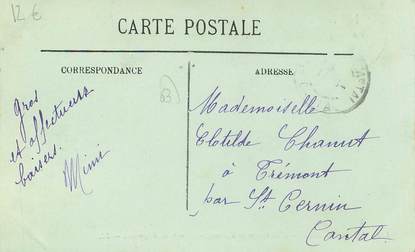 12 €
CARTE POSTALE
CORRESPONDANCE
63
ADRESSE
Gros
et affectueux
baisers.
Mimi
Mademoiselle
Clotilde Chanut
à Trémont
par St Cernin
Cantal